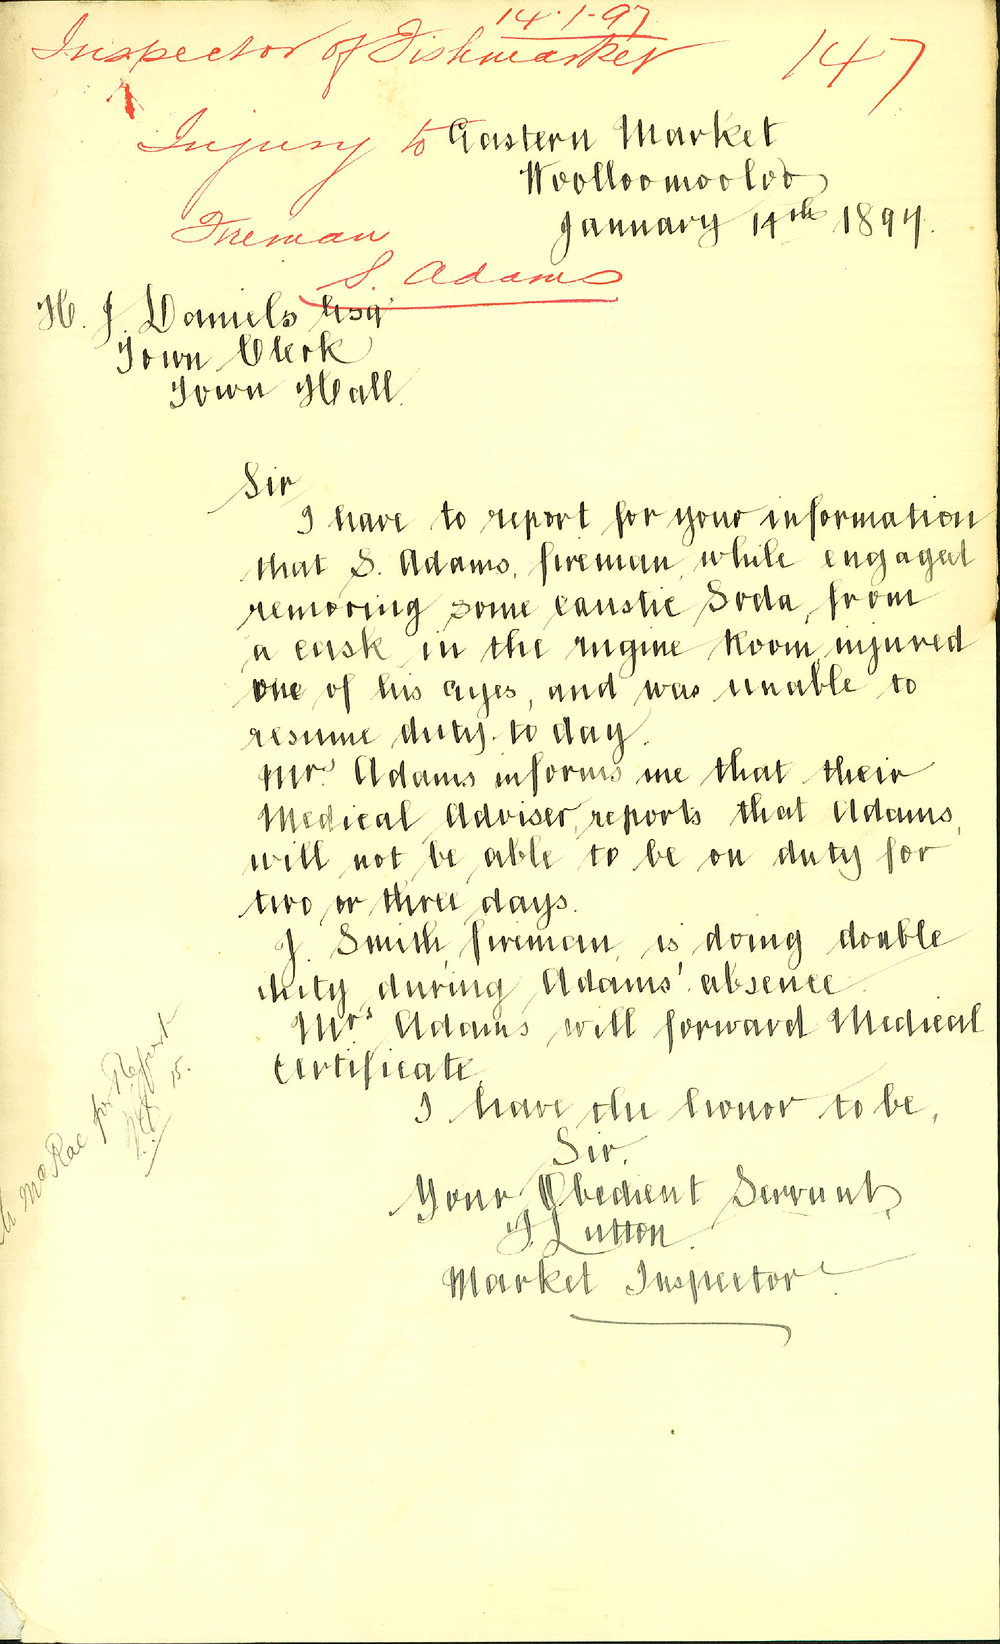 14.1.97
Inspector of Fishmarket
147
Injury to
Fireman
S. Adams
Eastern Market
Woolloomooloo
January 14th 1897.
H. J. Daniels Esq
Town Clerk
Town Hall.
Sir
I have to report for your information
that S. Adams, fireman, while engaged
removing some caustic Soda, from
a cask in the Engine Room, injured
one of his eyes, and was unable to
resume duty to day.
Mrs Adams informs me that their
Medical Adviser, reports that Adams,
will not be able to be on duty for
two or three days.
J. Smith, fireman, is doing double
duty during Adams' absence.
Mrs Adams will forward Medical
Certificate.
I have the honor to be,
Sir,
Your Obedient Servant,
Lutton.
Market Inspector.
McRae for Report
15.